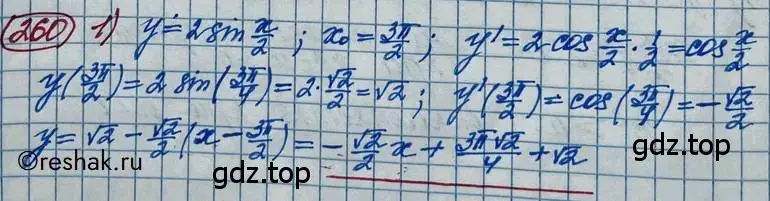 260 1) y = 2 sin x/2 ; x₀ = 3π/2 ; y' = 2·cos x/2 · 1/2 = cos x/2
y(3π/2) = 2 sin(3π/4) = 2·√2/2 = √2 ; y'(3π/2) = cos(3π/4) = -√2/2
y = √2 - √2/2 (x - 3π/2) = -√2/2 x + 3π√2/4 + √2
©reshak.ru
gdz.top gdz.top